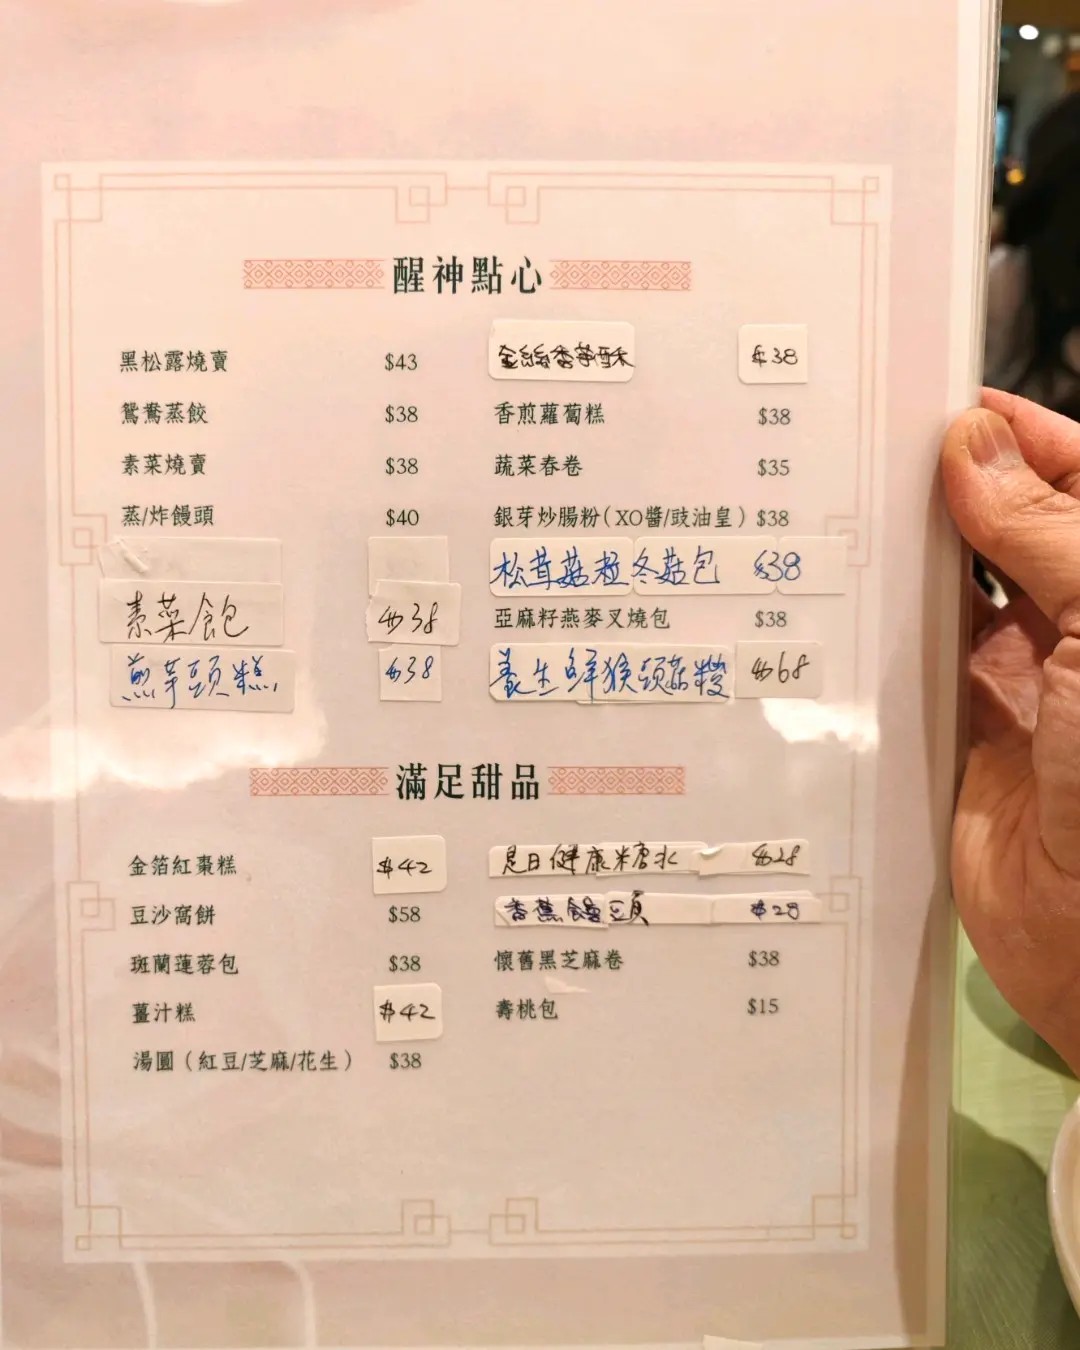 醒神點心
黑松露燒賣 $43
鴛鴦蒸餃 $38
素菜燒賣 $38
蒸/炸饅頭 $40
素菜飽 $38
煎芋頭糕 $38
金絲香芋酥 $38
香煎蘿蔔糕 $38
蔬菜春卷 $35
銀芽炒腸粉（XO醬/豉油皇）$38
松茸菇粒冬菇包 $38
亞麻籽燕麥叉燒包 $38
養生鮮猴頭菇糉 $68
滿足甜品
金箔紅棗糕 $42
豆沙窩餅 $58
斑蘭蓮蓉包 $38
薑汁糕 $42
湯圓（紅豆/芝麻/花生） $38
是日健康糖水 $28
香蕉饅頭 $28
懷舊黑芝麻卷 $38
壽桃包 $15